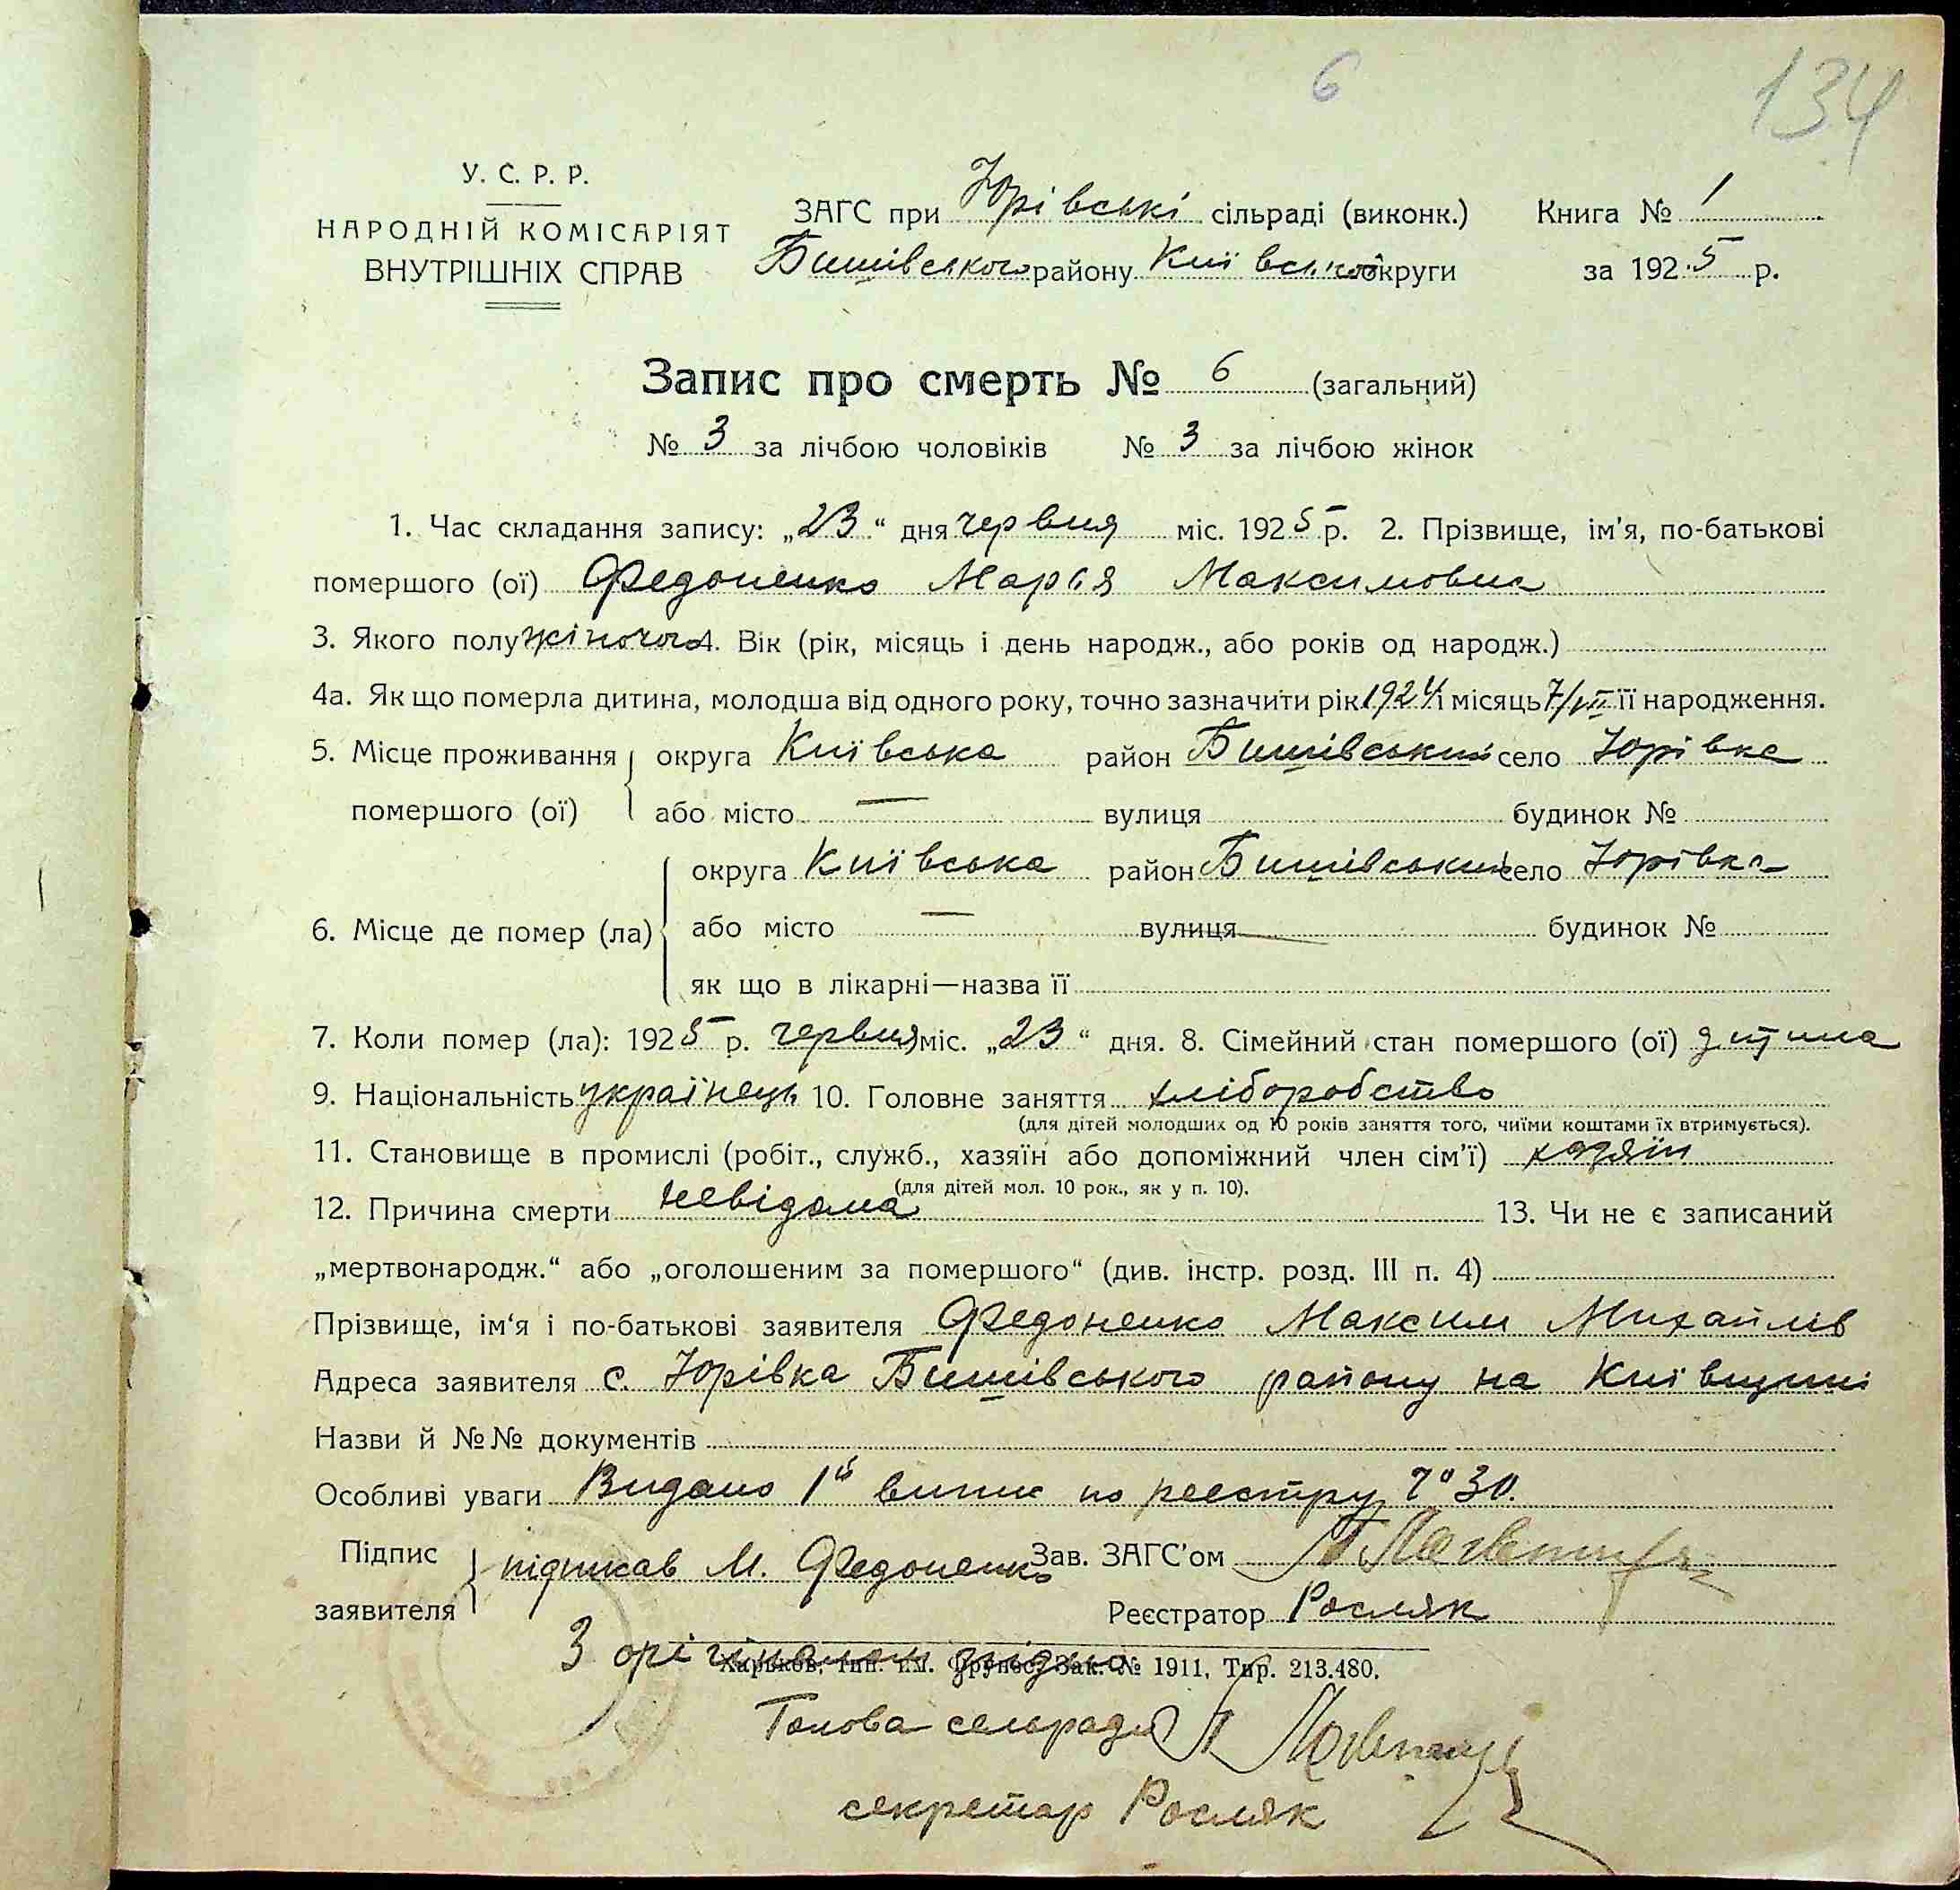 6
134
У. С. Р. Р.
НАРОДНІЙ КОМІСАРІЯТ
ВНУТРІШНІХ СПРАВ
ЗАГС при Юрівські сільраді (виконк.) Книга № 1
Бишівського району Київсько округи за 1925 р.
Запис про смерть № 6 (загальний)
№ 3 за лічбою чоловіків № 3 за лічбою жінок
1. Час складання запису: „23“ дня червня міс. 1925 р. 2. Прізвище, ім'я, по-батькові
помершого (ої) Федоненко Марія Максимовна
3. Якого полу жіночого 4. Вік (рік, місяць і день народж., або років од народж.)
4а. Як що померла дитина, молодша від одного року, точно зазначити рік 1924 і місяць 7/VII її народження.
5. Місце проживання округа Київська район Бишівський село Юрівка
помершого (ої) або місто — вулиця будинок №
округа Київська район Бишівський село Юрівка
6. Місце де помер (ла) або місто — вулиця будинок №
як що в лікарні—назва її
7. Коли помер (ла): 1925 р. червня міс. „23“ дня. 8. Сімейний стан помершого (ої) дитина
9. Національність українець 10. Головне заняття хліборобство
(для дітей молодших од 10 років заняття того, чиїми коштами їх втримується).
11. Становище в промислі (робіт., служб., хазяїн або допоміжний член сім'ї) хазяїн
(для дітей мол. 10 рок., як у п. 10).
12. Причина смерти невідома 13. Чи не є записаний
„мертвонародж.“ або „оголошеним за помершого“ (див. інстр. розд. III п. 4)
Прізвище, ім'я і по-батькові заявителя Федоненко Максим Михайлів
Адреса заявителя с. Юрівка Бишівського району на Київщині
Назви й №№ документів
Особливі уваги Видано 1й випис по реєстру № 30.
Підпис підписав М. Федоненко Зав. ЗАГС'ом
заявителя Реєстратор Росляк
З орігіналом згідно
Харьков, тип. ім. Фрунзе, Зак. № 1911, Тир. 213.480.
Голова сельради
секретар Росляк